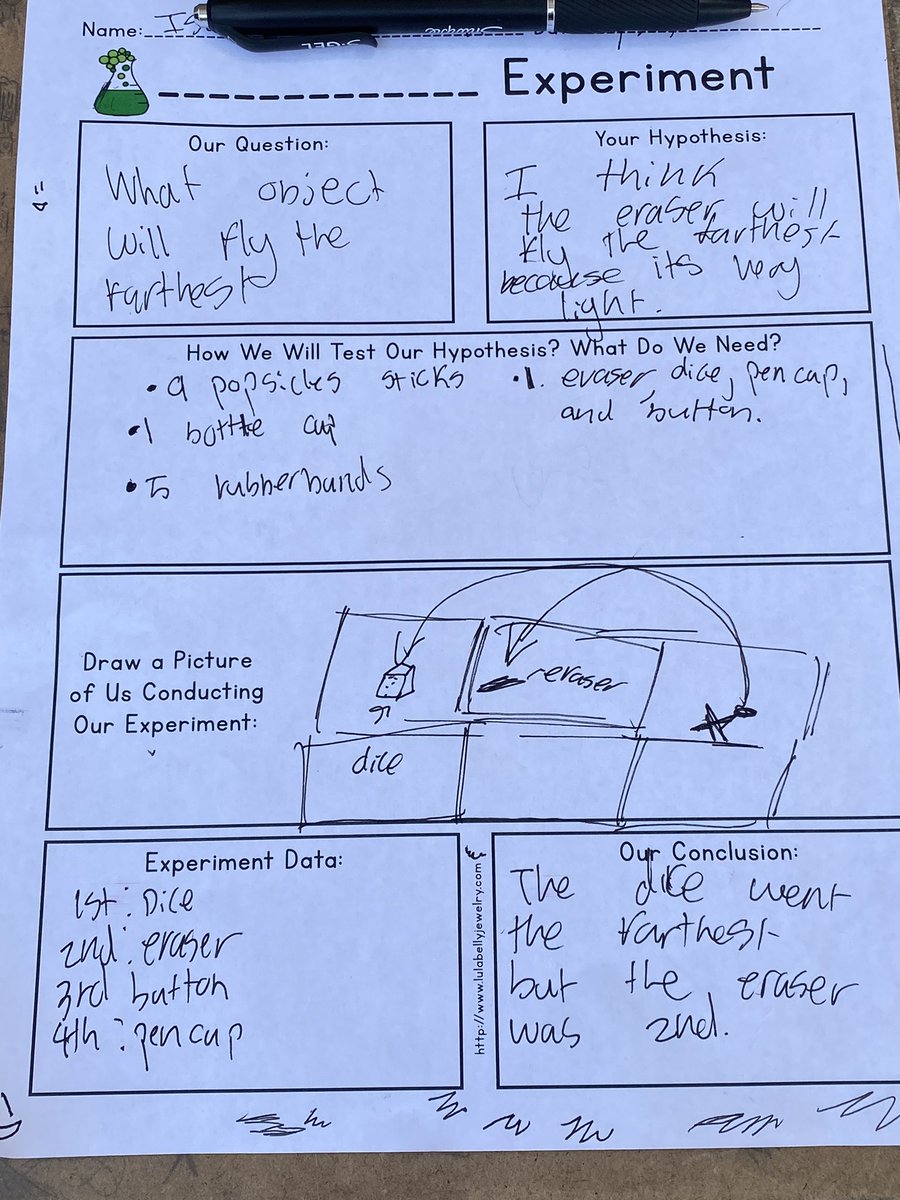 Name: Is
Experiment
Our Question:
What object
will fly the
farthest
Your Hypothesis:
I think
the eraser will
fly the farthest
becouse its very
light.
How We Will Test Our Hypothesis? What Do We Need?
• 9 popsicles sticks
• 1 bottle cap
• 5 rubberbands
• 1. eraser, dice, pen cap,
and button.
Draw a Picture
of Us Conducting
Our Experiment:
eraser
dice
Experiment Data:
1st: Dice
2nd: eraser
3rd button
4th: pen cap
http://www.lulabellyjewelry.com
Our Conclusion:
The dice went
the farthest
but the eraser
was 2nd.